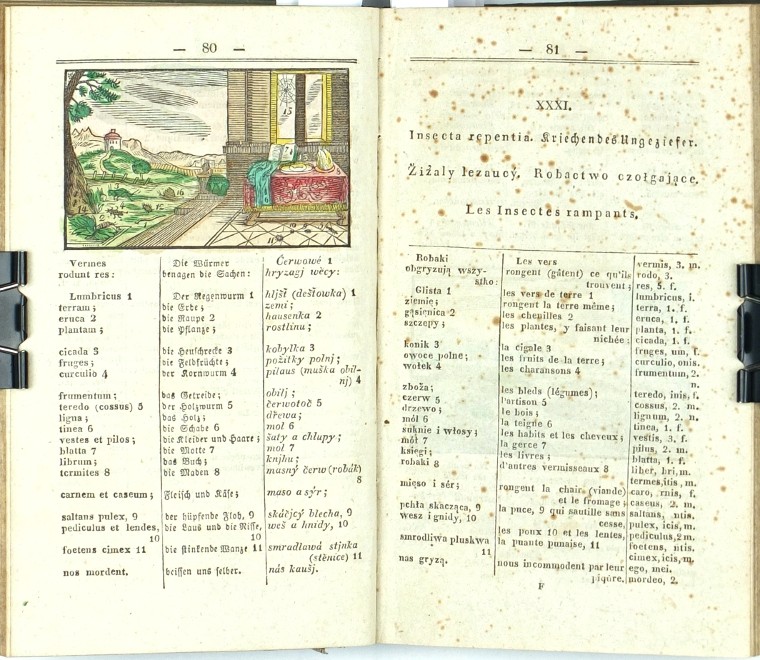 — 80 —
15
11
Vermes
rodunt res:
Lumbricus 1
terram;
eruca 2
plantam;
cicada 3
fruges;
curculio 4
frumentum;
teredo (cossus) 5
ligna;
tinea 6
vestes et pilos;
blatta 7
librum;
termites 8
carnem et caseum;
saltans pulex, 9
pediculus et lendes,
10
foetens cimex 11
nos mordent.
Die Würmer
benagen die Sachen:
Der Regenwurm 1
die Erde;
die Raupe 2
die Pflanze;
die Heuschrecke 3
die Feldfrüchte;
der Kornwurm 4
das Getreide;
der Holzwurm 5
das Holz;
die Schabe 6
die Kleider und Haare;
die Motte 7
das Buch;
die Maden 8
Fleisch und Käse;
der hüpfende Floh, 9
die Laus und die Nisse,
10
die stinkende Wanze 11
beissen uns selber.
Čerwowé 1
hryzagj wěcy:
hljšť (dešťowka) 1
zemi;
hausenka 2
rostlinu;
kobylka 3
požitky polnj;
pilaus (muška obil-
nj) 4
obilj;
čerwotoč 5
dřewa;
mol 6
šaty a chlupy;
mol 7
knjhu;
masný čerw (robák)
8
maso a sýr;
skáčjcý blecha, 9
weš a hnidy, 10
smradlawá stjnka
(stěnice) 11
nás kaušj.
— 81 —
XXXI.
Insecta repentia. Kriechendes Ungeziefer.
Žižaly lezaucý. Robactwo czołgające.
Les Insectes rampants.
Robaki
obgryzują wszy-
stko:
Glista 1
ziemię;
gąsienica 2
szczepy;
konik 3
owoce polne;
wołek 4
zboża;
czerw 5
drzewo;
mól 6
suknie i włosy;
mól 7
księgi;
robaki 8
mięso i sér;
pchła skacząca, 9
wesz i gnidy, 10
smrodliwa pluskwa
11
nas gryzą.
Les vers
rongent (gâtent) ce qu'ils
trouvent;
les vers de terre 1
rongent la terre même;
les chenilles 2
les plantes, y faisant leur
nichée:
la cigale 3
les fruits de la terre;
les charansons 4
les bleds (légumes);
l'artison 5
le bois;
la teigne 6
les habits et les cheveux;
la gerce 7
les livres;
d'antres vermisseaux 8
rongent la chair (viande)
et le fromage;
la puce, 9 qui sautille sans
cesse,
les poux 10 et les lentes,
la puante punaise, 11
nous incommodent par leur
piqûre.
vermis, 3. m.
rodo, 3.
res, 5. f.
lumbricus, i.
terra, 1. f.
eruca, 1. f.
planta, 1. f.
cicada, 1. f.
fruges, um, f.
curculio, onis.
frumentum, 2.
n.
teredo, inis, f.
cossus, 2. m.
lignum, 2. n.
tinea, 1. f.
vestis, 3. f.
pilus, 2. m.
blatta, 1. f.
liber, bri, m.
termes, itis, m.
caro, rnis, f.
caseus, 2. m.
saltans, ntis.
pulex, icis, m.
pediculus, 2 m.
foetens, ntis.
cimex, icis, m.
ego, mei.
mordeo, 2.
F